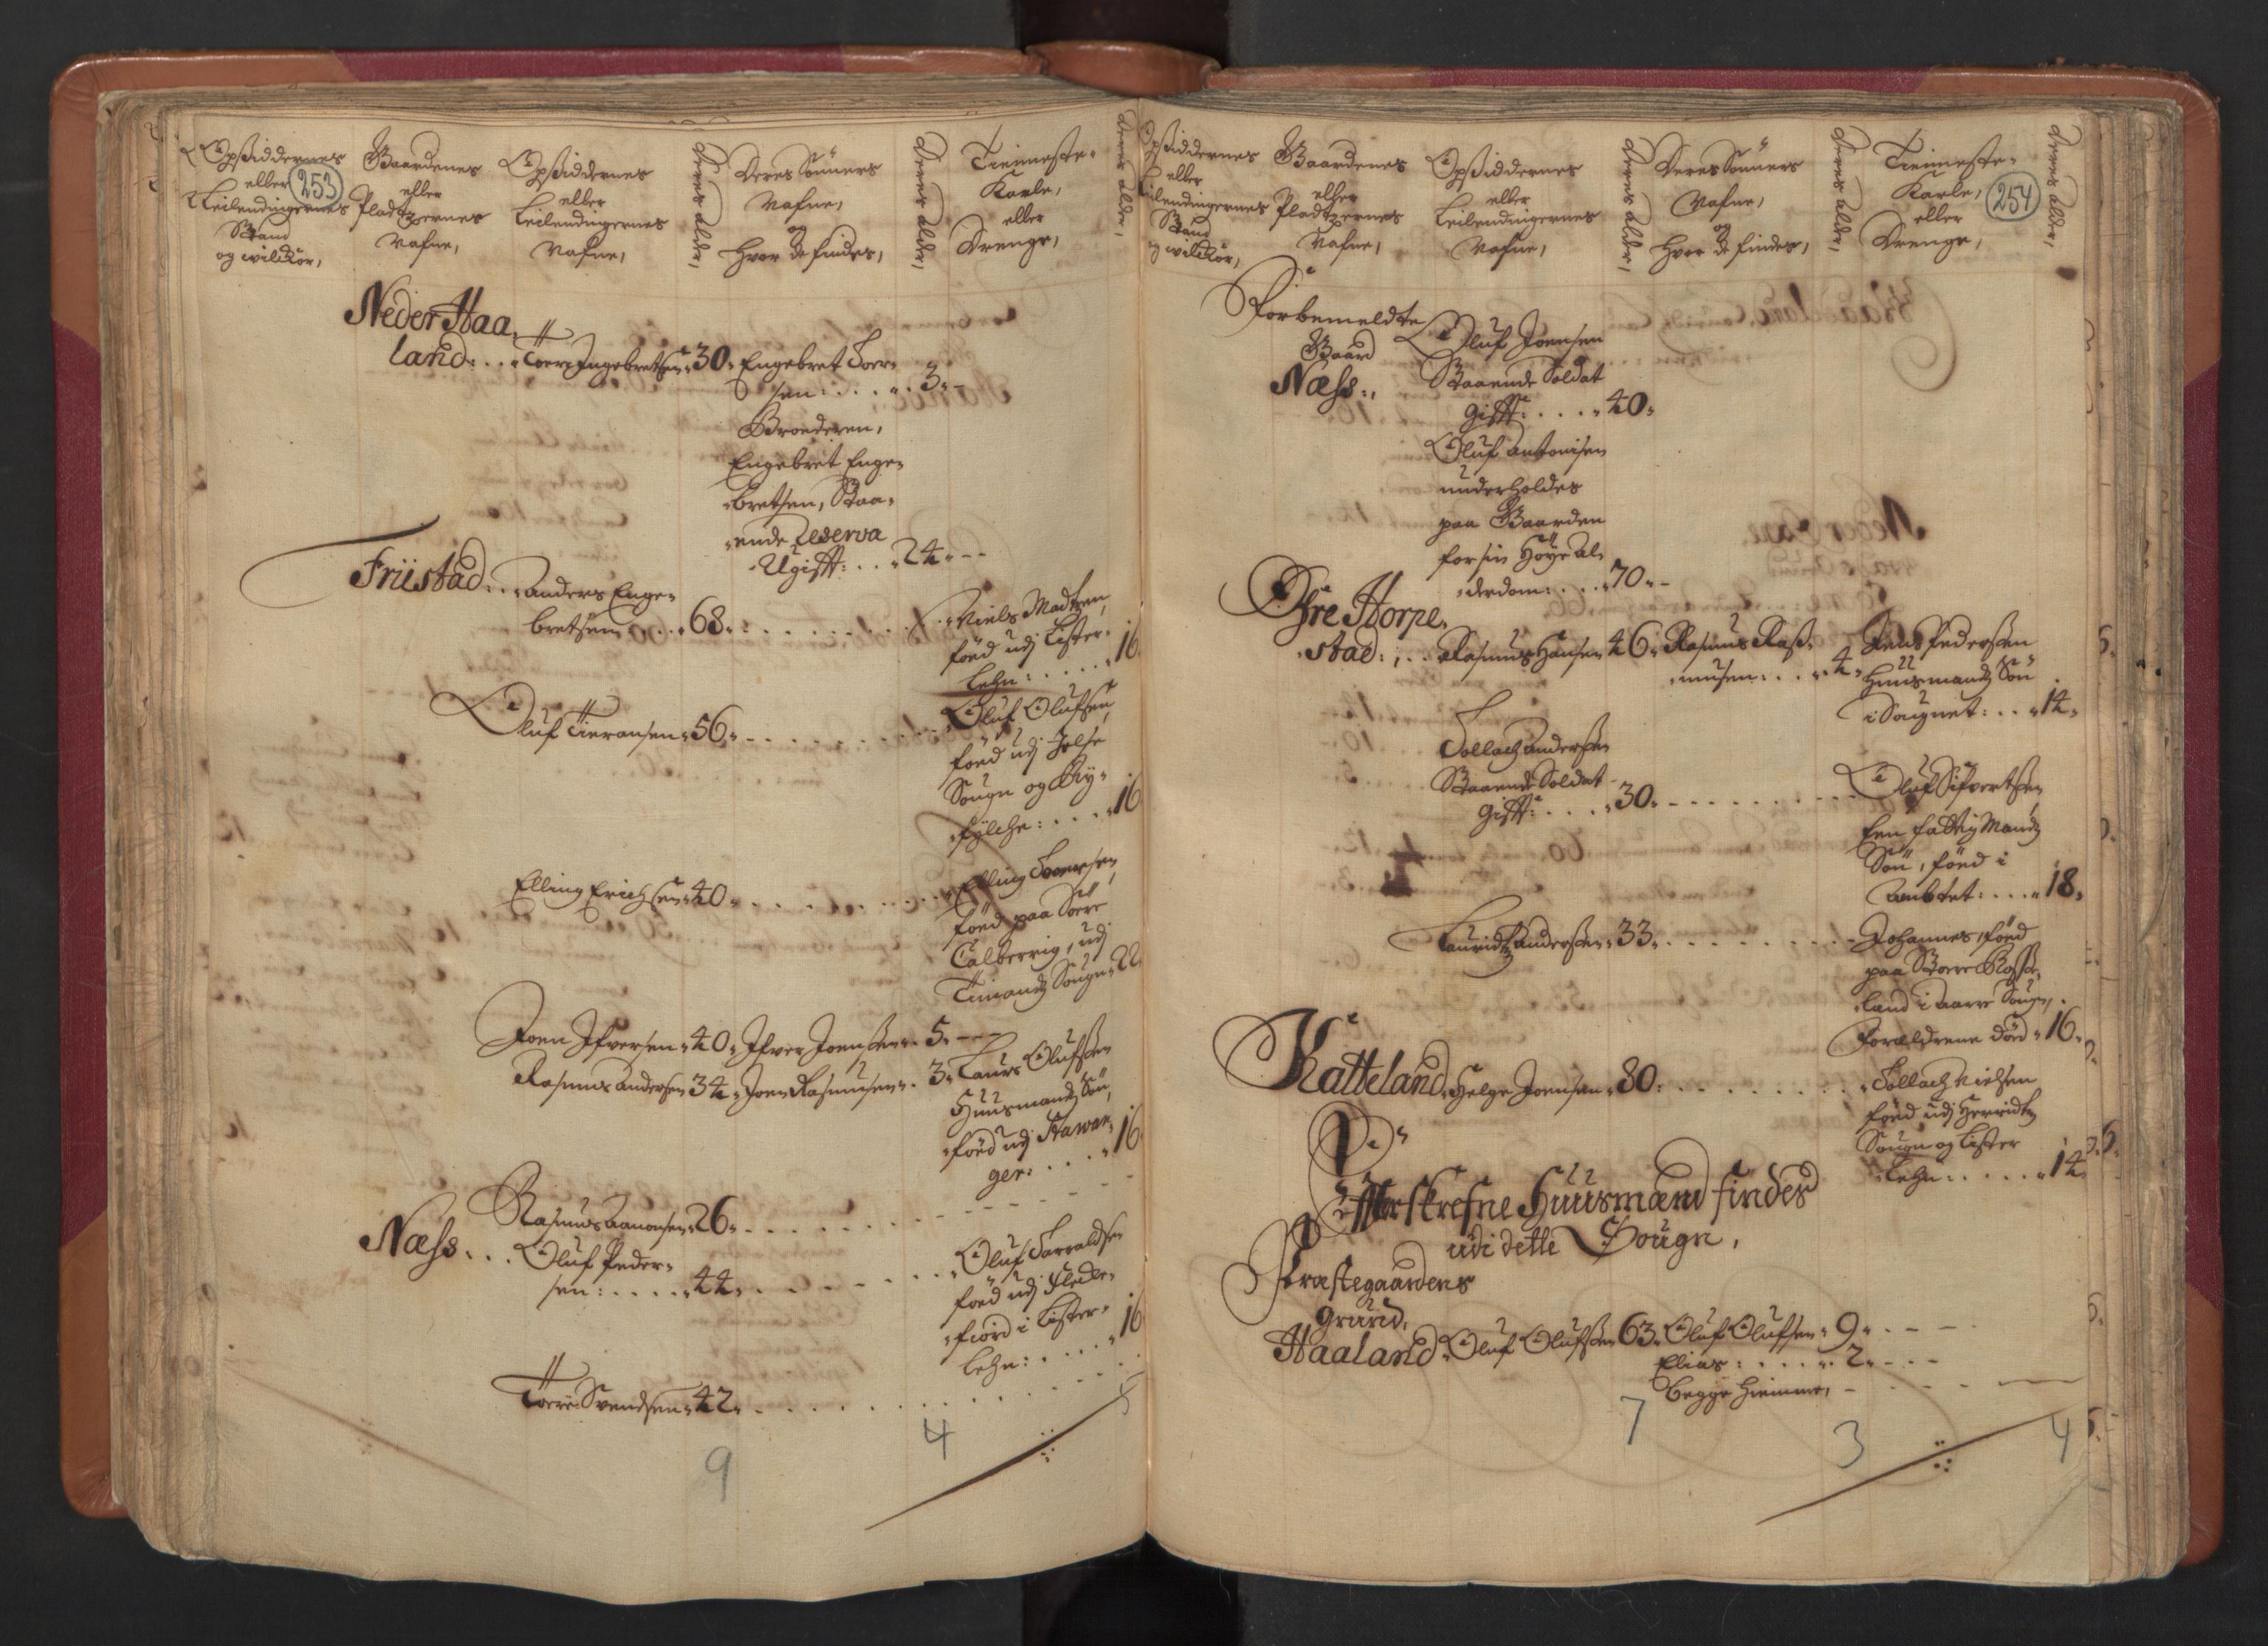 253
Opsiddernes
eller
Leilendingernes
Stand
og wilckor,
Gaardenes
eller
Pladtzernes
Nafne,
Opsiddernes
eller
Leilendingernes
Nafne,
Deres Alder,
Deres Sönners
Nafne,
og
Hvor de findes,
Deres Alder,
Tienneste-
Karle,
eller
Drenge,
Deres Alder,
Neder Haa,
land: . . Toere Ingebretsen 30. Engebret Toer-
sen: . . . 3. -
Broederen,
Engebret Enge-
bretsen, Staa-
ende Reserva
Ugifft: . . 24. - -
Friistad: . . Anders Enge-
bretsen . . 68. . . . . Niels Madtzen,
föed udj Lister-
Lehn: . . . . 16
Oluf Tieransen 56. . . . . Oluf Olufsen,
föed udj Jelse
Sougn og Ry-
fylche: . . . 16
Elling Erichsen 40. . . . . Elling Toersen,
föed paa Söre
Calberrig, udj
Timands Sougn 22.
Joen Ifversen 40. Ifver Joensen . 5. - -
Rasmus Andersen 34. Joen Rasmusen . 3. Laurs Olufsen
Huusmands Sön,
föed udj Stawan-
ger: . . . 16
Rasmus Aanonsen 26. . . . .
Næss . . Oluf Peder-
sen: . . . . 44. . . . . Oluf Torraldsen
föed udj Flecke-
fiord i Lister-
Lehn: . . . 16
Toere Svendsen 42. . . . .
9
4
5
254
Opsiddernes
eller
Leilendingernes
Stand
og wilckor,
Gaardenes
eller
Pladtzernes
Nafne,
Opsiddernes
eller
Leilendingernes
Nafne,
Deres Alder,
Deres Sönners
Nafne,
og
Hvor de findes,
Deres Alder,
Tienneste-
Karle,
eller
Drenge,
Deres Alder,
Forbemeldte
Gaard
Næss:,
Oluf Joensen
Staaende Soldat
gifft: . . . . 40.
Oluf Antonisen
underholdes
paa Gaarden
for sin Höye Al-
derdom: . . . 70. -
Öfre Horpe,
stad: , . . Rasmus Hansen 46. Rasmus Raß-
musen: . . . 4. Jens Pedersen
Huusmands Sön
i Sougnet: . . 14.
Tollach Andersen
Staaende Soldat
gifft: . . . . 30. . . . . Oluf Sifvertsen,
Een fattig Mands
Sön, föed i
Ambtet: . . . 18.
Lauridtz Andersen 33. . . . . Johannes, föed
paa Store Rosse-
land i Aarre Sougn,
Forældrene död . 16.
Katteland. Helge Joensen 80. . . . . Tollach Nielsen
föed udj Herridtz
Sougn og Lister
Lehn: . . . . 14.
Effterskrefne Huusmænd findes
udi dette Sougn,
Præstegaardens
Grund,
Haaland. Oluf Olufsen 63. Oluf Olufsen . 9. - -
Elias: . . . . 2. - -
begge hiemme, -
7
3
4